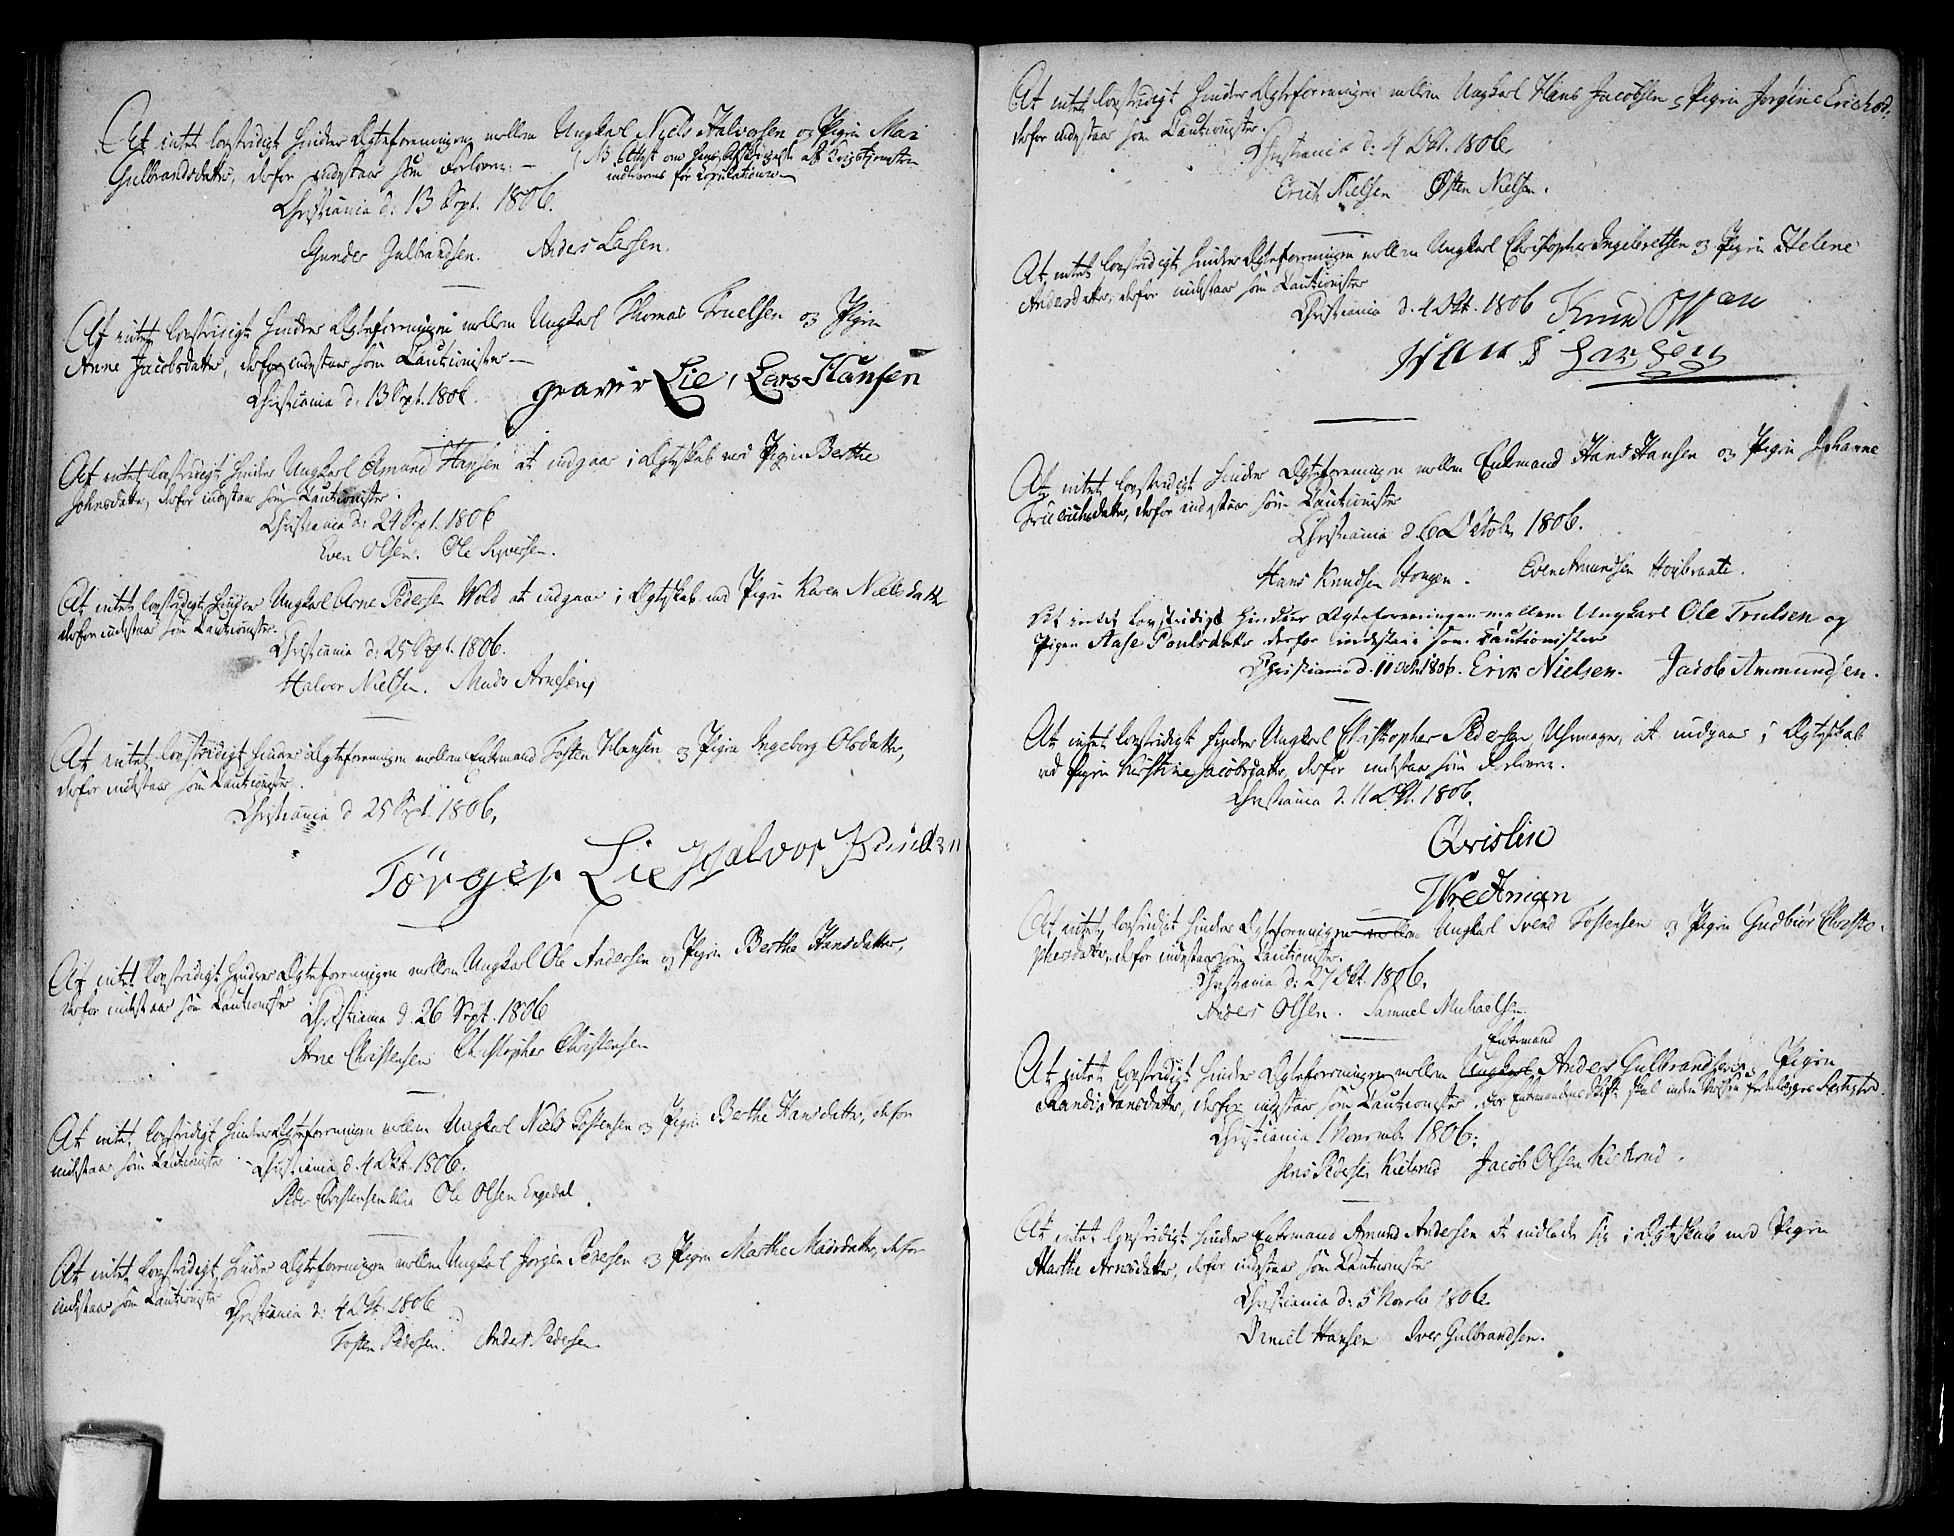 At intet lovstridigt hinder Ægteforeningen mellem Ungkarl Niels Halvorsen og Pigen Mari
Gulbrandsdatter, derfor indestaar som Forlover. —
(NB. Attest om hans Afskeed af Krigstjenesten
indleveres før Copulationen
Christiania d: 13 Sept. 1806.
Gunder Gulbrandsen. Anders Larsen.
At intet lovstridigt hindrer Ægteforeningen mellem Ungkarl Thomas Truelsen og Pigen
Anne Jacobsdatter, derfor indestaar som Cautionister —
Christiania d. 13 Sept. 1806.
Lie, Lars Hansen
At intet lovstridigt hindrer Ungkarl Amund Hansen at indgaae i Ægteskab med Pigen Berthe
Johnsdatter, derfor indestaar som Cautionister.
Christiania d: 24 Sept. 1806
Even Olsen. Ole Syversen.
At intet lovstridigt hindrer Ungkarl Arne Pedersen Wold at indgaae i Ægteskab med Pigen Karen Nielsdatter
derfor indestaar som Cautionister.
Christiania d: 25 Sept. 1806.
Halvor Nielsen. Mads Arnesen
At intet lovstridigt hindrer Ægteforeningen mellem Enkemand Tosten Hansen og Pigen Ingeborg Olsdatter,
derfor indestaar som Cautionister.
Christiania d 25 Sept. 1806,
Törger Lie Halvor
At intet lovstridigt hindrer Ægteforeningen mellem Ungkarl Ole Andersen og Pigen Berthe Hansdatter,
derfor indestaar som Cautionister
Christiania d. 26 Sept. 1806
Arne Christensen Christopher Christensen
At intet lovstridigt hindrer Ægteforeningen mellem Ungkarl Niels Tostensen og Pigen Berthe Hansdatter, derfor
indestaar som Cautionister
Christiania d. 4 Oct. 1806.
Peder Christensen Ole Olsen Engedal
At intet lovstridigt hinder Ægteforeningen mellem Ungkarl Jørgen Pedersen og Pigen Marthe Madsdatter, derfor
indestaar som Cautionister
Christiania d: 4 Oct. 1806
Tosten Pedersen. Anders Pedersen.
At intet lovstridigt hinder Ægteforeningen mellem Ungkarl Hans Jacobsen og Pigen Jorgine Erichsd.
derfor indestaar som Cautionister.
Christiania d: 4 Oct. 1806.
Erich Nielsen Østen Nielsen.
At intet lovstridigt hinder Ægteforeningen mellem Ungkarl Christopher Ingebretsen og Pigen Helene
Andersdatter, derfor indestaar som Cautionister
Christiania d. 4 Oct. 1806 Knud Olsen
Hans Larsen
At intet lovstridigt hindrer Ægteforeningen mellem Enkemand Hans Hansen og Pigen Johanne
Friderichsdatter, derfor indestaar som Cautionister
Christiania d. 6 October 1806.
Hans Knudsen Hougen. Even Amundsen Høybraate.
At intet lovstridigt hindrer Ægteforeningen mellem Ungkarl Ole Trulsen og
Pigen Aase Poulsdatter derfor indestaae som Cautionister
Christiania d. 11 Oct 1806. Erik Nielsen. Jacob Ammundsen.
At intet lovstridigt hindrer Ungkarl Christopher Pedersen, Uhrmager, at indgaae i Ægteskab
med Pigen Kirstine Jacobsdatter, derfor indestaar som Forlover.
Christiania d. 11 Oct. 1806.
Qvislin
Wredman
At intet lovstridigt hinder Ægteforeningen mellem Ungkarl Svend Tostensen og Pigen Gudbiør Christo-
phersdatter, derfor indestaar som Cautionister.
Christiania d: 27 Oct. 1806.
Anders Olsen. Samuel Michaelsen
Enkemand
At intet lovstridigt hinder Ægteforeningen mellem Ungkarl Anders Gulbrandsen og Pigen
Randi Hansdatter, derfor indestaar som Cautionister. For Enkemandens Skifte skal inden Vielsen fremlægges Skifteattest.
Christiania 1 November 1806.
Jens Pedersen Kielsrud Jacob Olsen Kielsrud.
At intet lovstridigt hinder Enkemand Amund Andersen at indlade sig i Ægteskab med Pigen
Marthe Arnesdatter, derfor indestaar som Cautionister
Christiania d: 5 Novbr 1806.
Daniel Hansen Iver Gulbrandsen.